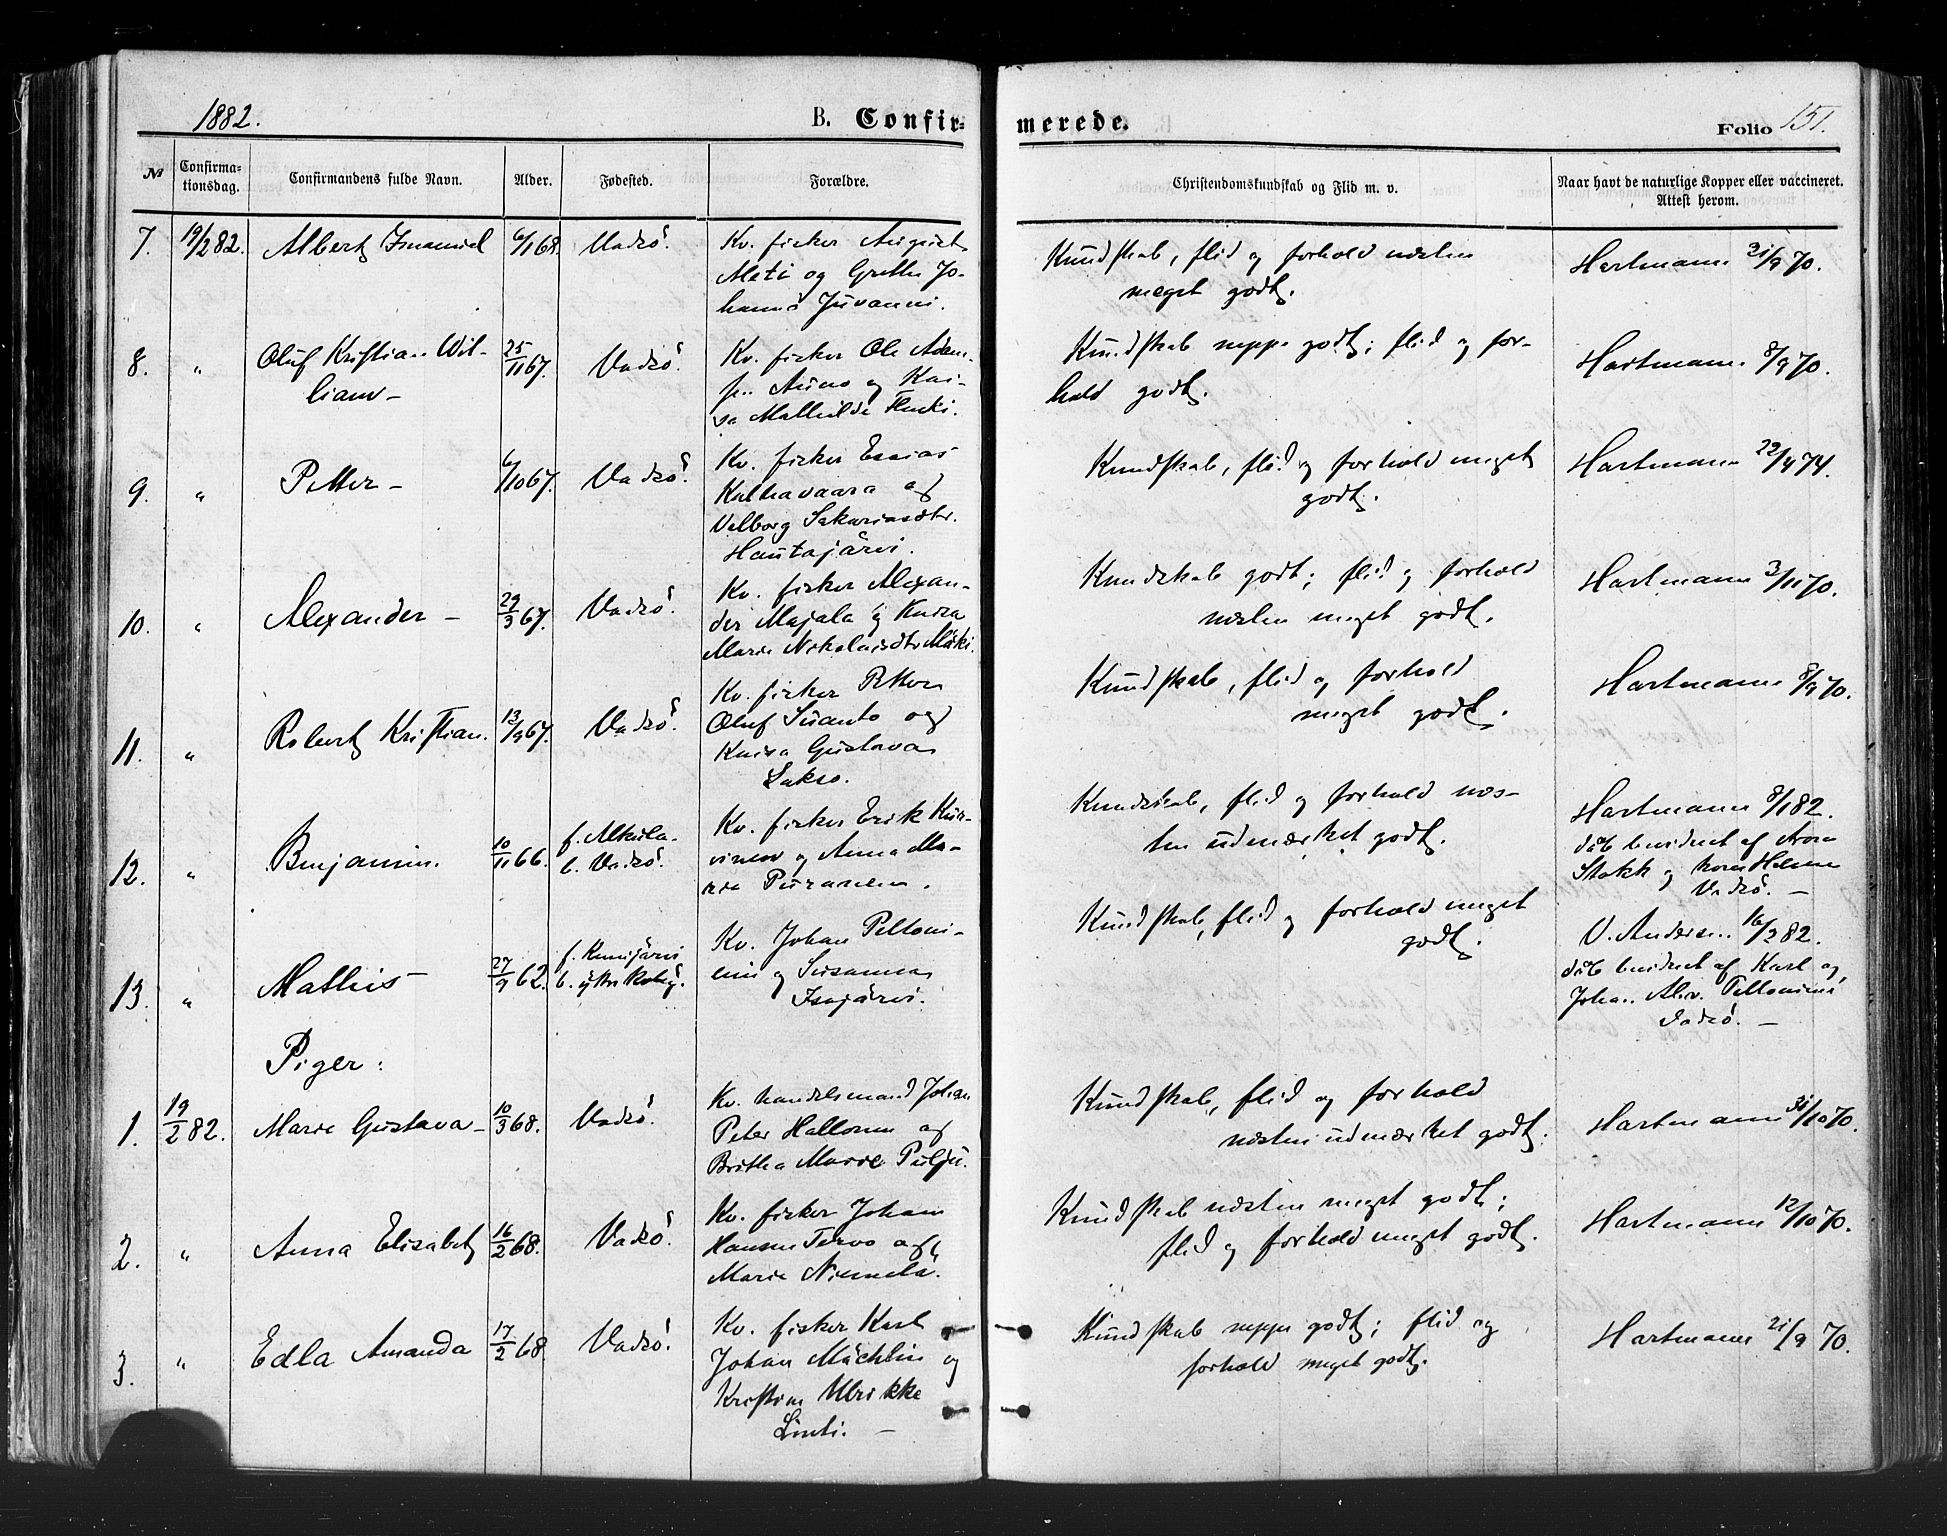 1882.
B. Confirmerede.
Folio 151.
№
Confirmationsdag.
Confirmandens fulde Navn.
Alder.
Fødested.
Forældre.
Christendomskundskab og Flid m. v.
Naar havt de naturlige Kopper eller vaccineret.
Attest herom.
7. 19/2 82. Albert Imanuel 6/1 68. Vadsö.
Kv. fisker August
Meti og Grethe Jo-
hanne Juvanni.
Kundskab, flid og forhold næsten
meget godt.
Hartmann 21/9 70.
8. " Oluf Kristian Wil-
liam – 25/11 67. Vadsö.
Kv. fisker Ole Adam-
sen Auno og Kai-
sa Mathilde
Kundskab neppe godt; flid og for-
hold godt.
Hartmann 8/9 70.
9. " Petter – 6/10 67. Vadsö.
Kv. fisker Esaias
Keltavaara og
Valborg Sakariasdtr.
Hautajärvi.
Kundskab, flid og forhold meget
godt.
Hartmann 22/4 74.
10. " Alexander – 29/3 67. Vadsö.
Kv. fisker Alexan-
der Majala og Kaisa
Marie Nikolaisdtr Mäki.
Kundskab godt; flid og forhold
næsten meget godt.
Hartmann 3/11 70.
11. " Robert Kristian. 13/9 67. Vadsö.
Kv. fisker Petter
Oluf Suanto og
Kaisa Gustava
Lakso.
Kundskab, flid og forhold
meget godt.
Hartmann 8/9 70.
12. " Benjamin. 10/11 66. f. Alkula
b. Vadsö.
Kv. fisker Erik Kur-
vinen og Anna Ma-
ria Puranen.
Kundskab, flid og forhold næs-
ten udmærket godt.
Hartmann 8/1 82.
dåb bevidnet af Aron
Stokk og kone Helene
Vadsö. –
13. " Mathis – 27/9 62. f. Kemijärvi
b.
Kv. Johan Peltoni-
emi og Susanna
Isojärvi.
Kundskab, flid og forhold meget
godt.
V. Andersen 16/2 82.
dåb bevidnet af Karl og
Johan Alex. Peltoniemi
Vadsö. –
Piger:
1. 19/2 82. Marie Gustava – 10/3 68. Vadsö.
Kv. handelsmand Johan
Peter Hallonen og
Britha Marie Pulju.
Kundskab, flid og forhold
næsten udmærket godt.
Hartmann 31/10 70.
2. " Anna Elisabet 16/2 68. Vadsö.
Kv. fisker Johan
Hansen Tervo og
Marie Niemelä.
Kundskab næsten meget godt;
flid og forhold meget godt.
Hartmann 12/10 70.
3. " Edla Amanda 17/2 68 Vadsö.
Kv. fisker Karl
Johan Mächlin og
Kristine Ulrikke
Linti. –
Kundskab neppe godt; flid og
forhold meget godt.
Hartmann 21/9 70.